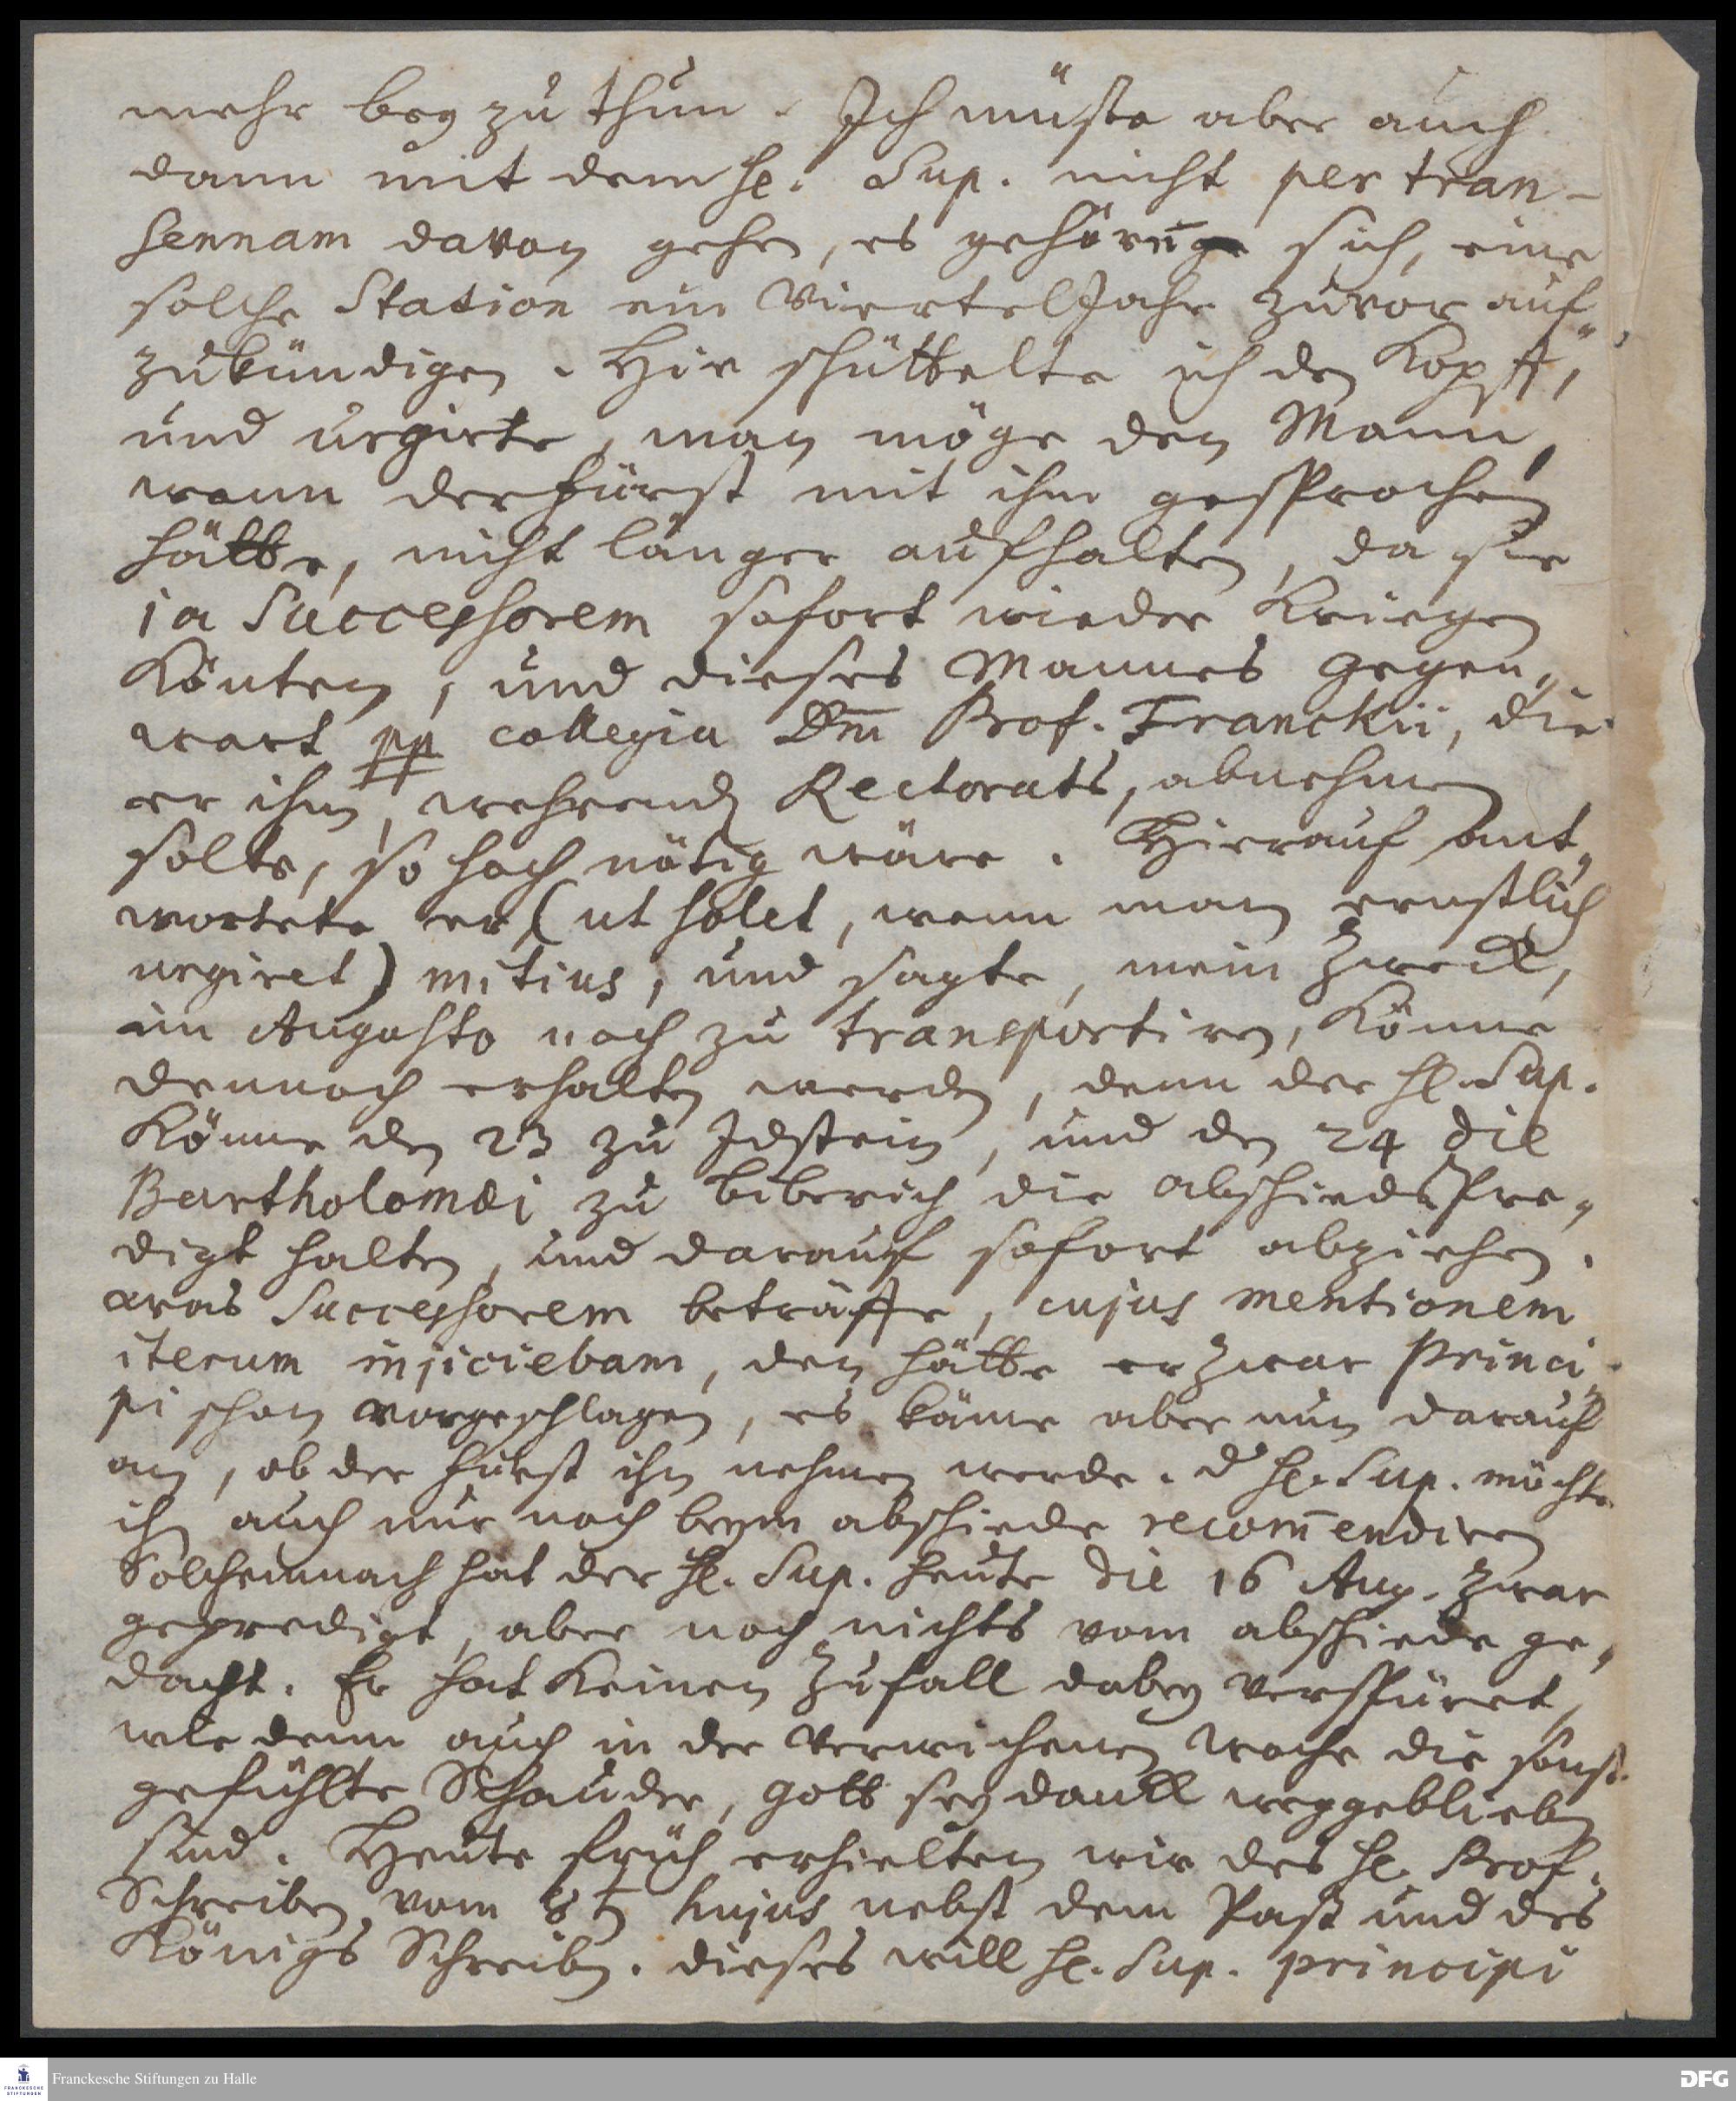 mehr bey zu thun. Ich müste aber auch
dann mit dem H. Sup. nicht per tran-
sennam davon gehen, es gehöre sich, eine
solche Station ein ViertelJahr zuvor auf„
zukündigen. Hir schüttelte ich den Kopff,
und urgirte, man möge den Mann,
wenn der Fürst mit ihm gesprochen
hätte, nicht länger aufhalten, da sie
ja Successorem sofort wieder Kriegen
Könten, und dieses Mannes Gegen„
wart pp collegia Dnī Prof. Franckii, die
er ihm, wehrend Rectorats, abnehmen
solte, so hoch nötig wäre. Hierauf ant„
wortete er (ut solet, wenn man ernstlich
urgiret) mitius, und sagte, mein Zweck,
im Augusto noch zu transportiren, Könne
dennoch erhalten werden, denn der H. Sup.
Könne den 23 zu Idstein, und den 24 die
Bartholomæi zu Biberich die abschiedsPre„
digt halten, und darauf sofort abziehen.
was Successorem beträffe, cujus mentionem
iterum injiciebam, den hätte er zwar Princi„
pi schon vorgeschlagen, es käme aber nun darauf
an, ob der Fürst ihn nehmen werde. d H. Sup. möchte
ihn auch nur noch beym abschiede recom̄endiren
Solchemnach hat der H. Sup. heute die 16 Aug. zwar
gepredigt, aber noch nichts vom abschiede ge„
dacht. Er hat Keinen Zufall dabey verspüret,
wie denn auch in der verwichenen Woche die sonst
gefühlte Schauder, Gott sey danck weggeblieben
sind. Heute früh erhielten wir des H. Prof.
Schreiben vom 8t hujus nebst dem Paß und des
Königs Schreiben. dieses will H. Sup. principi
Franckesche Stiftungen zu Halle
FRANCKESCHE STIFTUNGEN
DFG